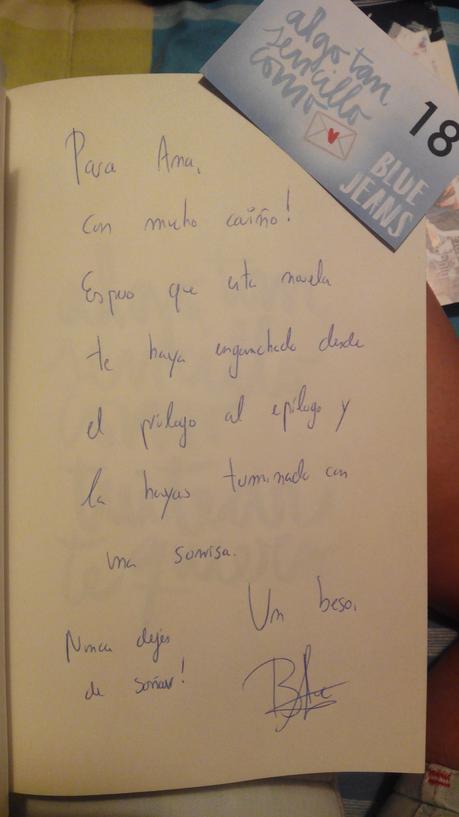 algo tan
sencillo
como
18
BLUE
JEANS
Para Ana,
con mucho cariño!
Espero que esta novela
te haya enganchado desde
el prólogo al epílogo y
la hayas terminado con
una sonrisa.
Un beso,
Nunca dejes
de soñar!